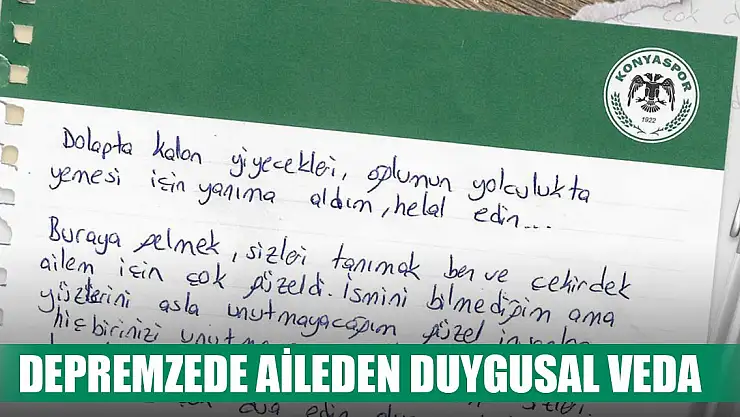 KONYASPOR
1922
Dolapta kalan yiyecekleri, oğlumun yolculukta
yemesi için yanıma aldım, helal edin...
Buraya gelmek, sizleri tanımak ben ve çekirdek
ailem için çok güzeldi. İsmini bilmediğim ama
yüzlerini asla unutmayacağım güzel insanlar
hiçbirinizi
DEPREMZEDE AİLEDEN DUYGUSAL VEDA